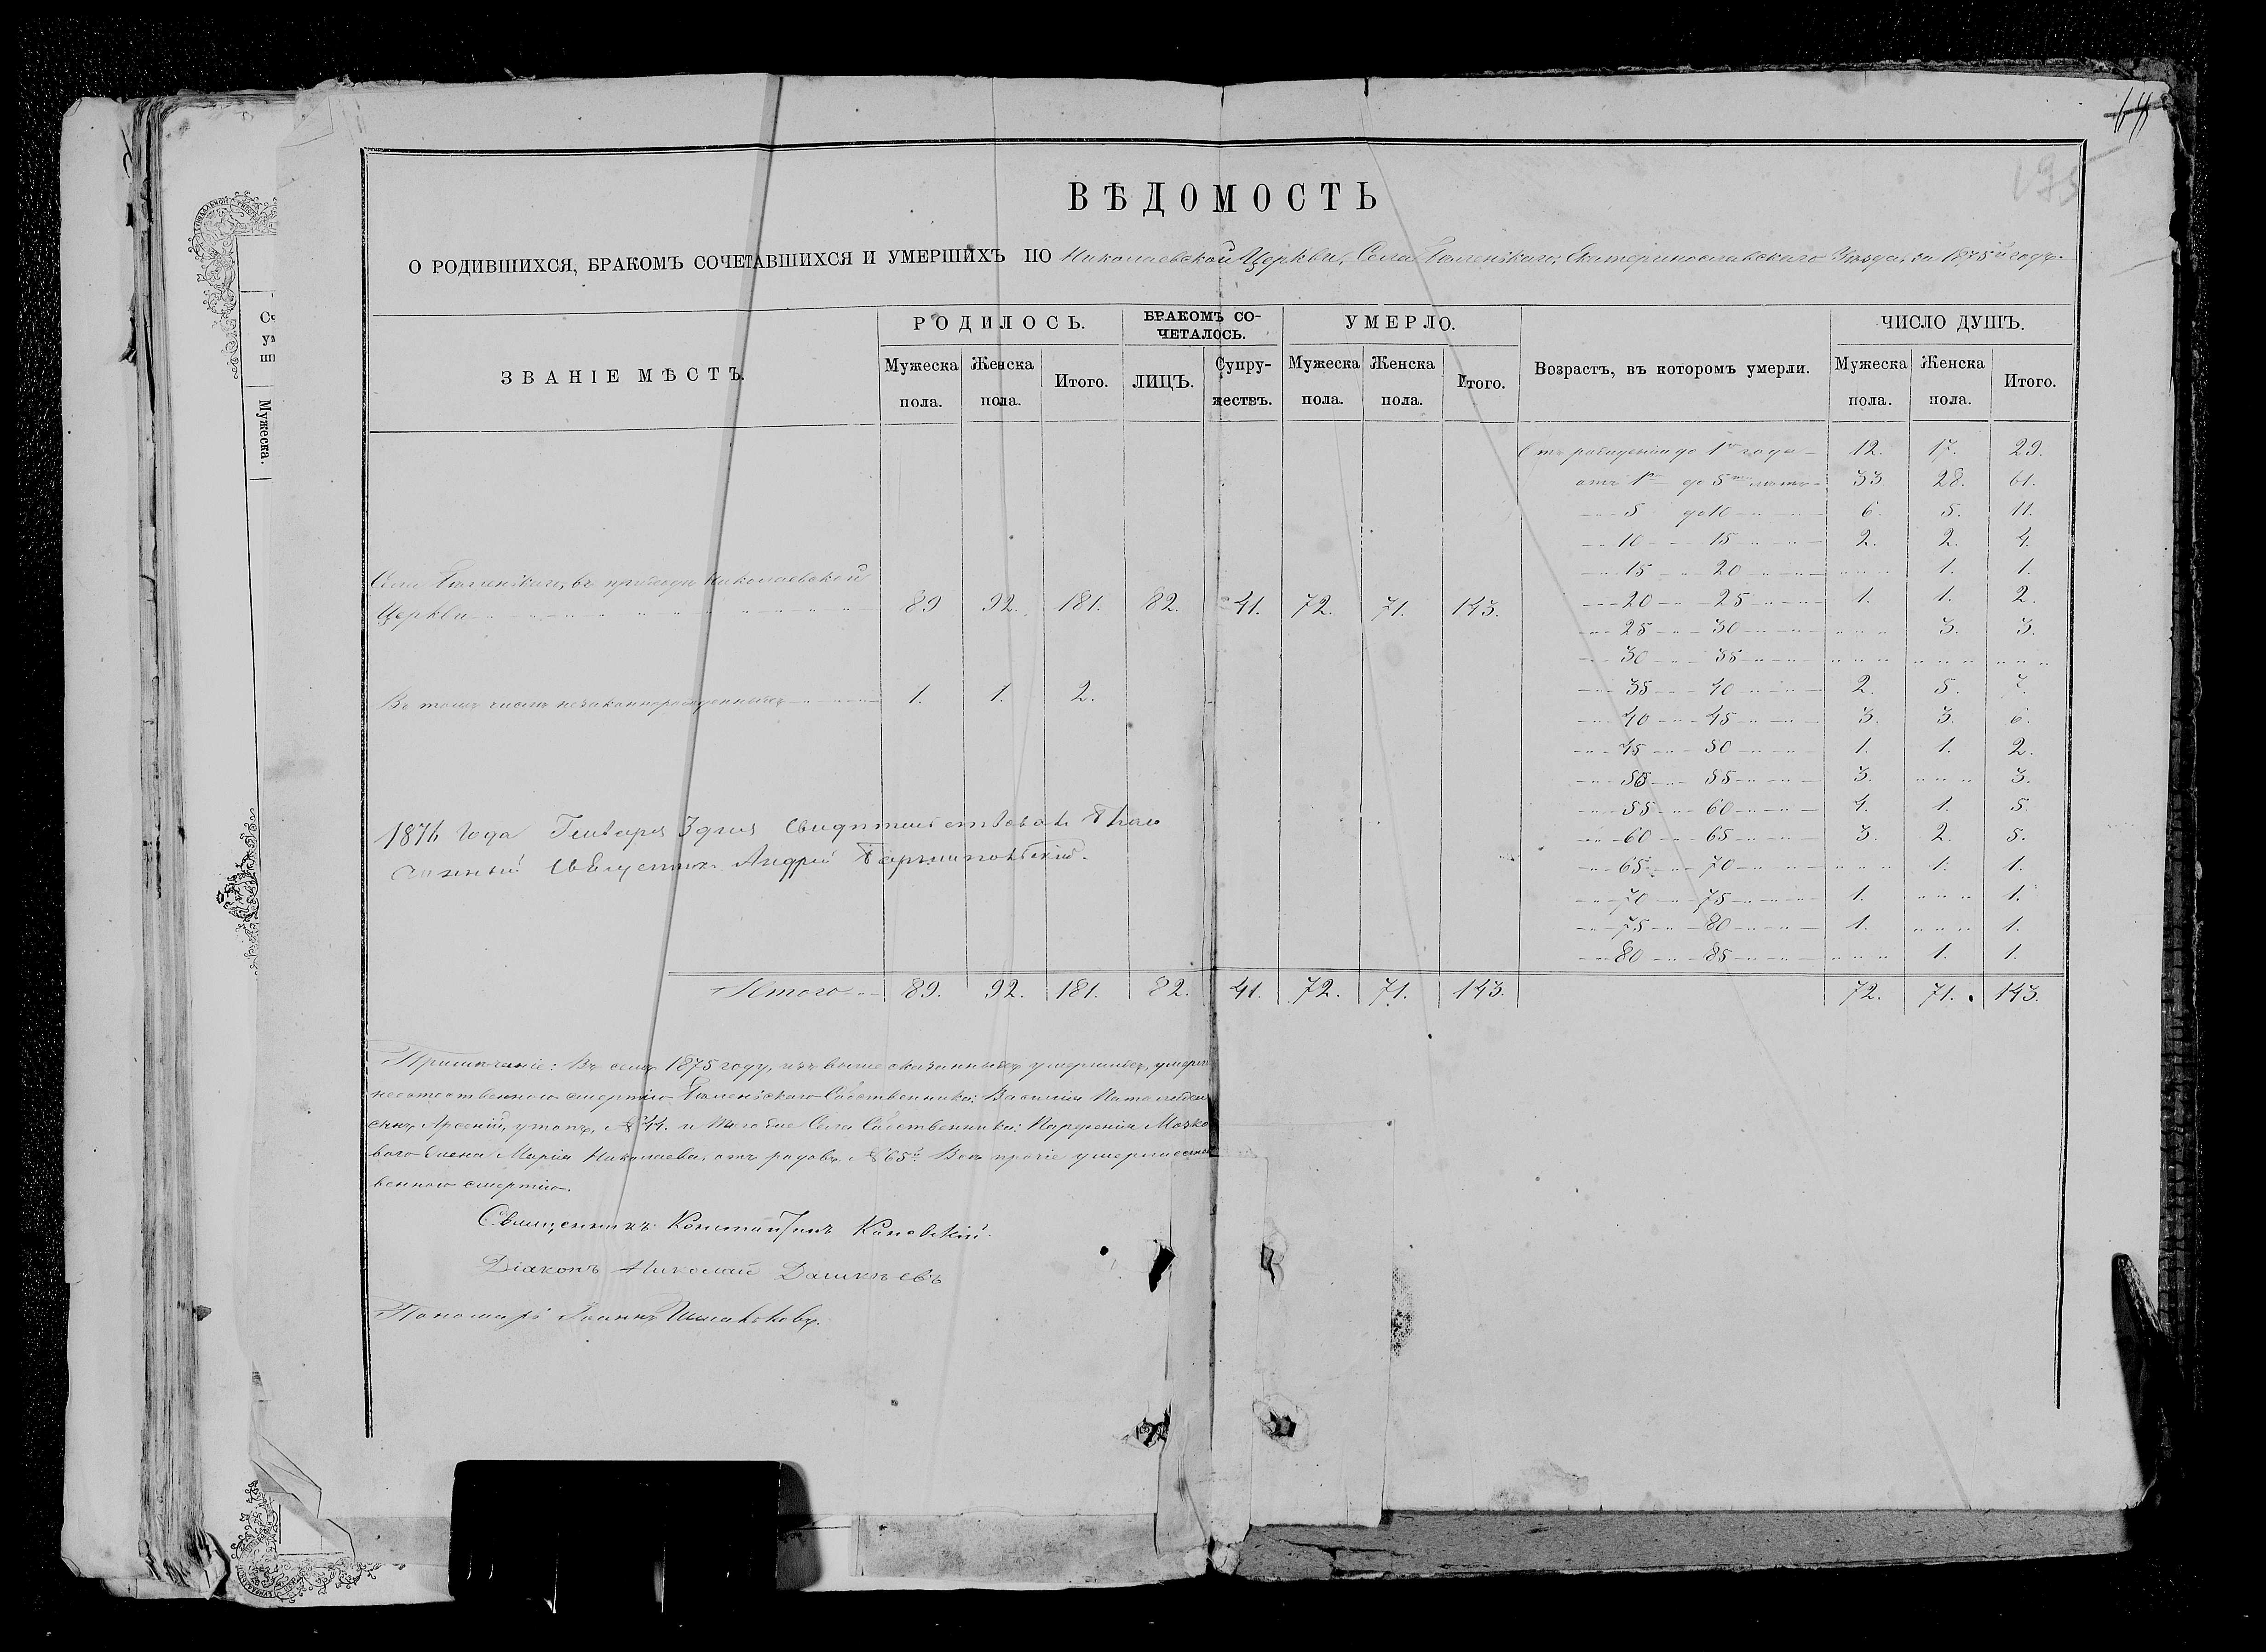 ВѢДОМОСТЬ
О РОДИВШИХСЯ, БРАКОМЪ СОЧЕТАВШИХСЯ И УМЕРШИХЪ ПО Николаевской Церкви, Села Екатеринославскаго Уѣзда, за 1875й годъ.
ЗВАНІЕ МѢСТЪ.
РОДИЛОСЬ.
Мужеска пола.
Женска пола.
Итого.
БРАКОМЪ СО-
ЧЕТАЛОСЬ.
ЛИЦЪ.
Супру-
жествъ.
УМЕРЛО.
Мужеска пола.
Женска пола.
Итого.
Возрастъ, въ которомъ умерли.
ЧИСЛО ДУШЪ.
Мужеска пола.
Женска пола.
Итого.
Отъ рожденія до 1го года 12. 17. 29.
отъ 1го до 5ти лѣтъ 33 28. 61.
5 до 10 6. 5. 11.
10 15 2. 2. 4.
15 20 1. 1.
20 25 1. 1. 2.
25 30 3. 3.
30 35
35 40 2. 5. 7.
40 45 3. 3. 6.
45 50 1. 1. 2.
50 55 3. 3.
55 60 4. 1. 5.
60 65 3. 2. 5.
65 70 1. 1.
70 75 1. 1.
75 80 1. 1.
80 85 1. 1.
72. 71. 143.
Села въ приходѣ Николаевской
Церкви 89 92. 181. 82. 41. 72. 71. 143.
Въ томъ числѣ незаконнорожденныхъ 1. 1. 2.
1876 года Генваря 3 дня Свидѣтельствовалъ Благо
чинный Священникъ Андрей
Итого 89. 92. 181. 82. 41. 72. 71. 143.
Примѣчаніе: Въ семъ 1875 году, изъ вышесказанныхъ умершихъ, умерли
неестественною смертію Собственника: Василія
сынъ Арсеній, утопъ, № 44. и того же Села Собственника: Парфенія
жена Марія Николаева, отъ родовъ № 65й. Всѣ прочіе умерли естест
венною смертію.
Священникъ Константинъ Кановскій.
Діаконъ Николай Дашкѣевъ
Пономарь Іоаннъ
Мужеска.